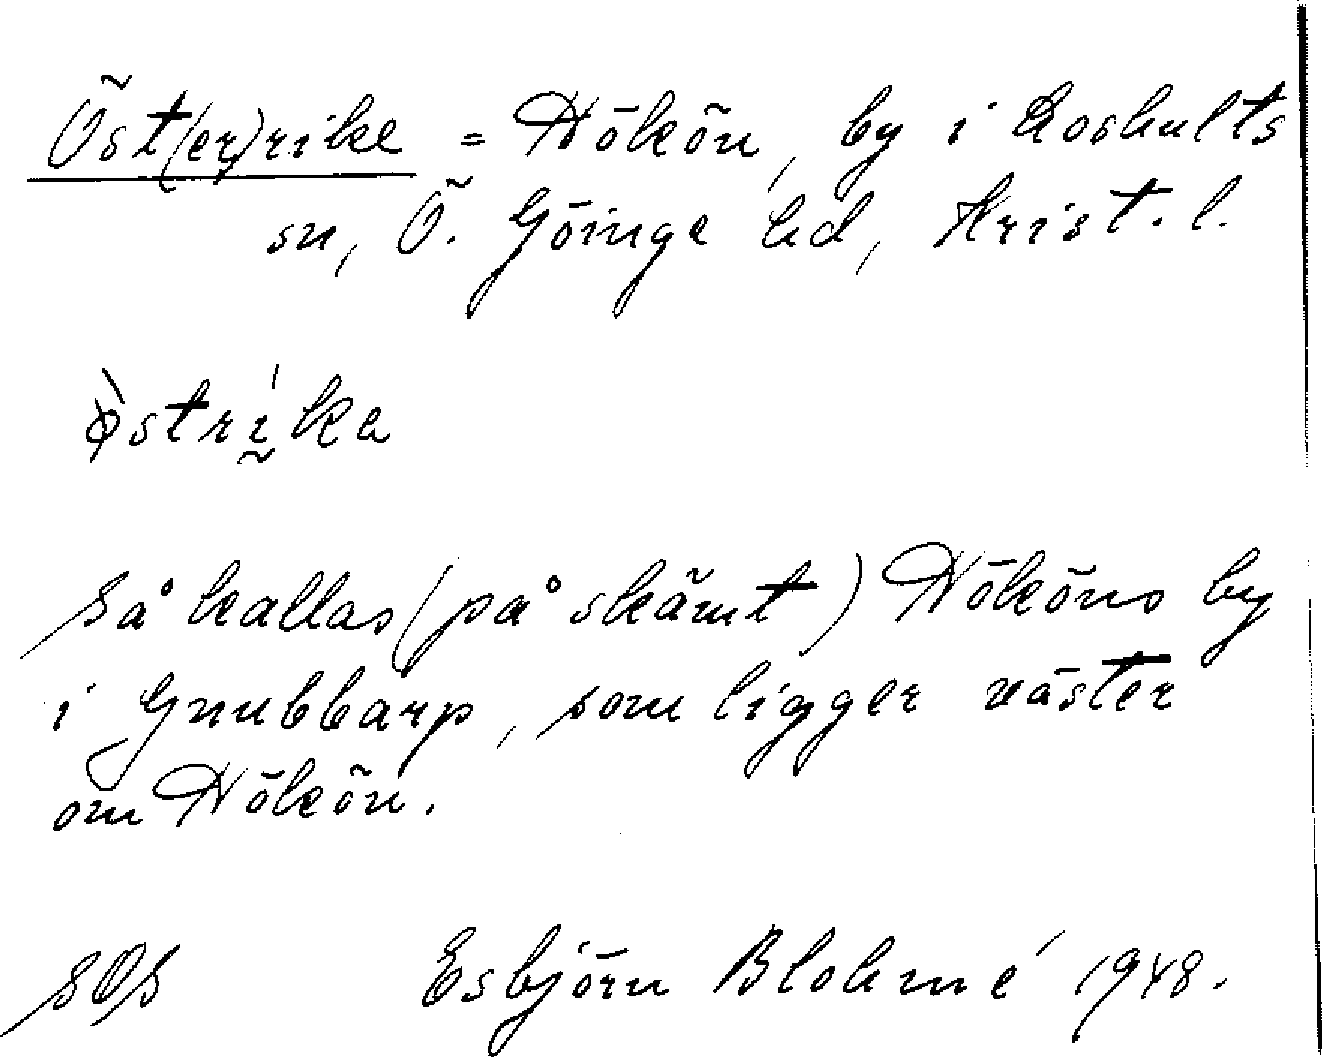 Öst(er)rike = Hökön, by i Loshults
sn, Ö. Göinge hd, Krist. l.
ø̀strḭ́ka
så kallas (på skämt) Hököns by
i Gnubbarp, som ligger väster
om Hökön.
SOS Esbjörn Blohmé 1948.